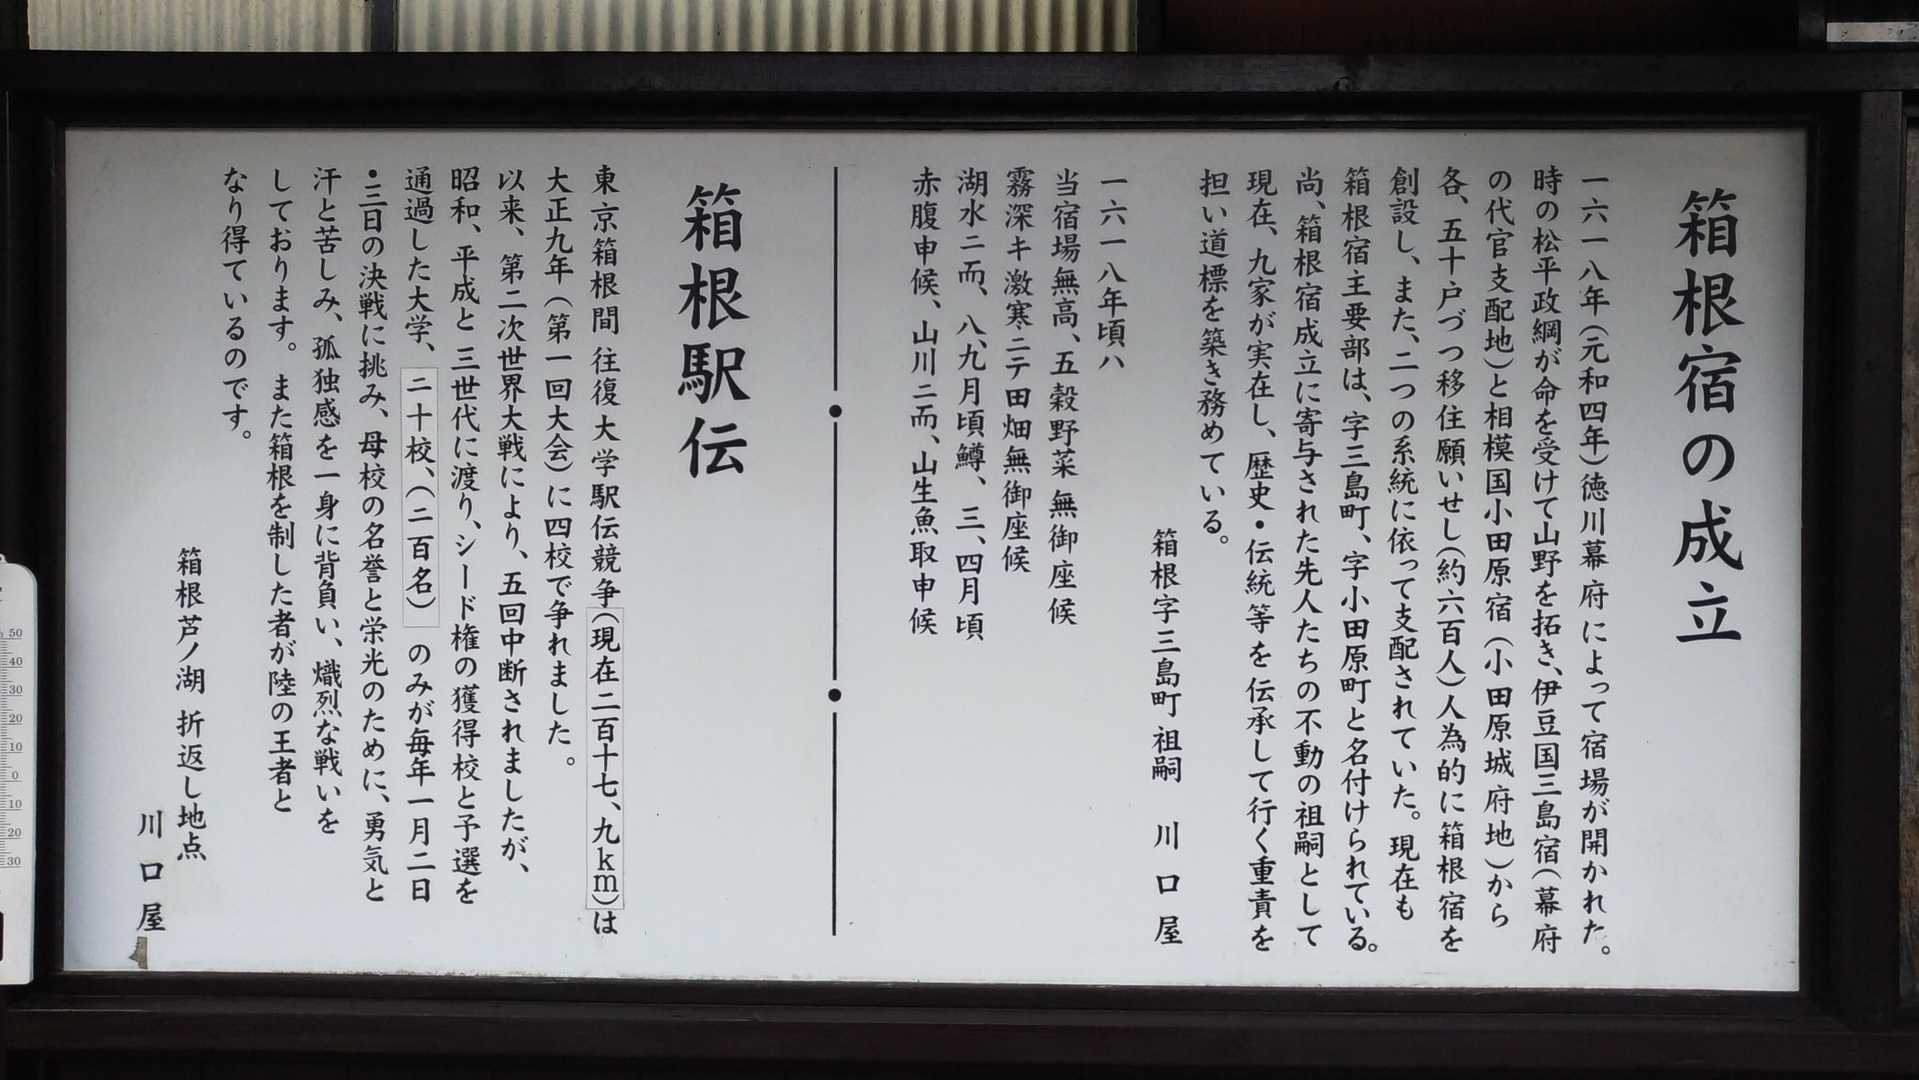 箱根宿の成立
一六一八年（元和四年）徳川幕府によって宿場が開かれた。
時の松平政綱が命を受けて山野を拓き、伊豆国三島宿（幕府
の代官支配地）と相模国小田原宿（小田原城府地）から
各、五十戸づつ移住願いせし（約六百人）人為的に箱根宿を
創設し、また、二つの系統に依って支配されていた。現在も
箱根宿主要部は、字三島町、字小田原町と名付けられている。
尚、箱根宿成立に寄与された先人たちの不動の祖嗣として
現在、九家が実在し、歴史・伝統等を伝承して行く重責を
担い道標を築き務めている。
箱根字三島町 祖嗣 川口屋
一六一八年頃ハ
当宿場無高、五穀野菜無御座候
霧深キ激寒ニテ田畑無御座候
湖水ニ而、八、九月頃鱒、三、四月頃
赤腹申候、山川ニ而、山生魚取申候
箱根駅伝
東京箱根間往復大学駅伝競争（現在二百十七、九ｋｍ）は
大正九年（第一回大会）に四校で争れました。
以来、第二次世界大戦により、五回中断されましたが、
昭和、平成と三世代に渡り、シード権の獲得校と予選を
通過した大学、二十校、（二百名）のみが毎年一月二日
・三日の決戦に挑み、母校の名誉と栄光のために、勇気と
汗と苦しみ、孤独感を一身に背負い、熾烈な戦いを
しております。また箱根を制した者が陸の王者と
なり得ているのです。
箱根芦ノ湖 折返し地点
川口屋
50
40
30
20
10
0
10
20
30